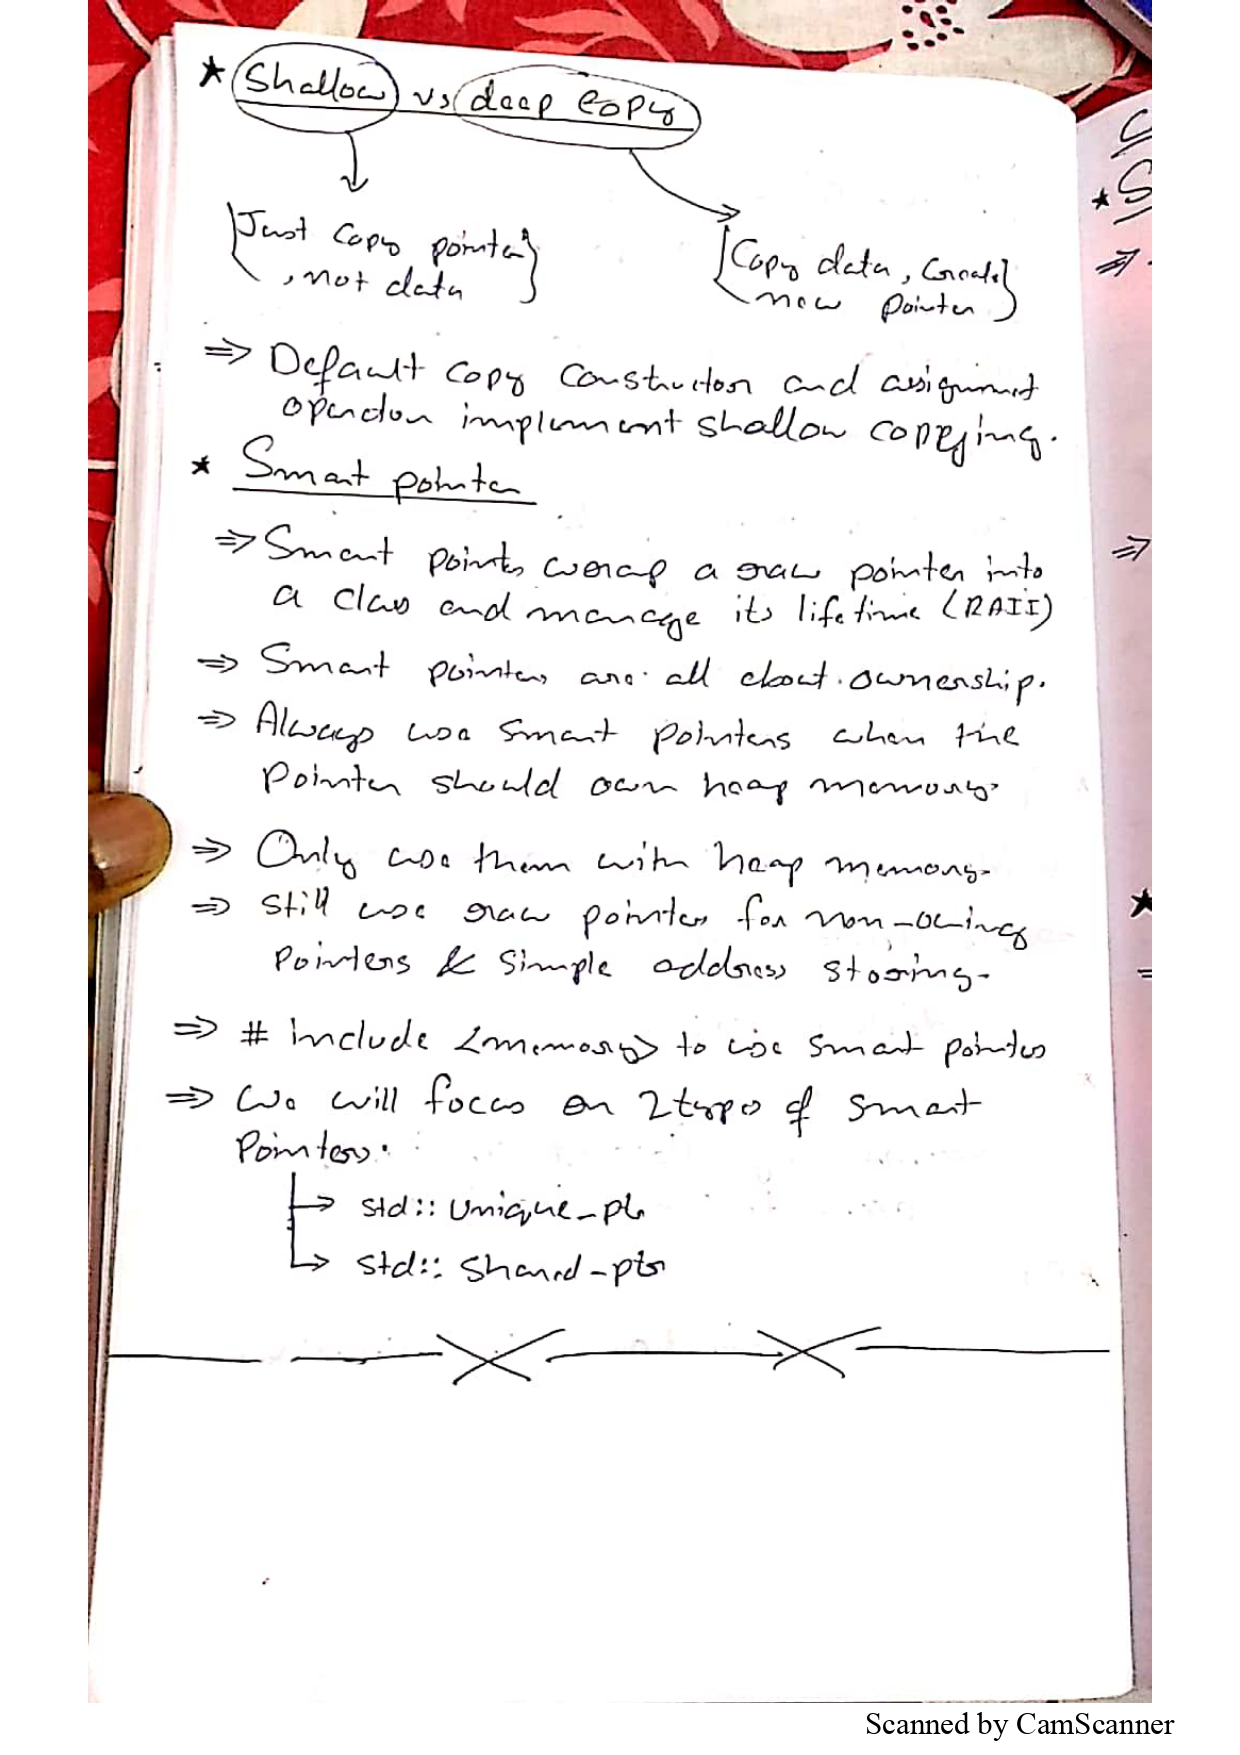 ★ Shallow vs deep copy
{Just copy pointer}
, not data
{Copy data, Create}
new pointer
⇒ Default copy constructor and assignment
operator implement shallow copying.
★ Smart pointer
⇒ Smart points wrap a raw pointer into
a class and manage its lifetime (RAII)
⇒ Smart pointers are all about ownership.
⇒ Always use smart pointers when the
pointer should own heap memory.
⇒ Only use them with heap memory.
⇒ Still use raw pointers for non-owing
pointers & simple address storing.
⇒ # include <memory> to use smart pointers
⇒ We will focus on 2 types of smart
Pointers.
→ std:: unique_ptr
→ std:: shared_ptr
Scanned by CamScanner